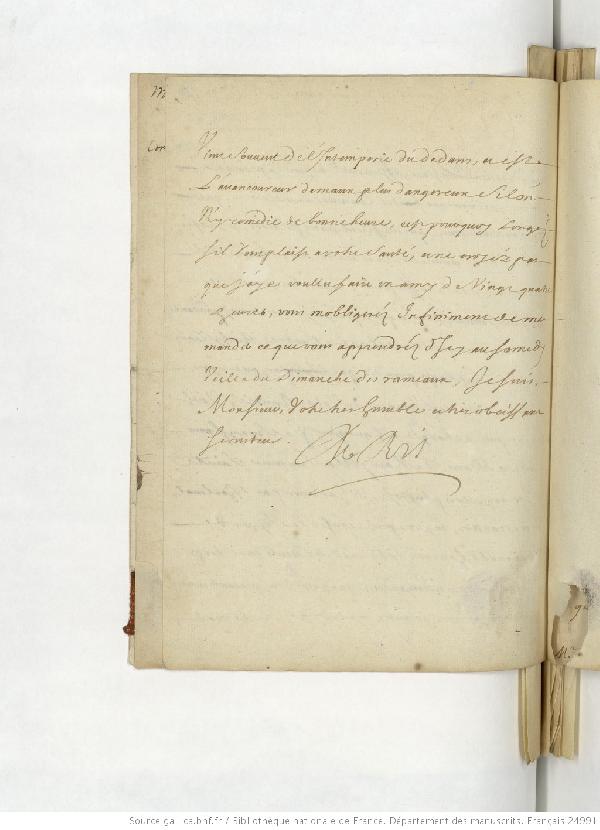 Vient souvent de l'Intemperie du dedans, et est
L'avancoureur de maux plus dangereux si lon
N'y remedie de bonne heure, cest pourquoy songez
sil vous plaist a votre santé, et ne croyez pas
que j'aye voulu faire un amy de Vingt quatre
heures, vous mobligerez Infiniment de me
mander ce que vous apprendrez d'Icy au samedy
Veille du Dimanche des rameaux, Je suis,
Monsieur, Votre tres humble et tres obeissant
serviteur.
Source gallica.bnf.fr / Bibliothèque nationale de France. Département des manuscrits. Français 24991